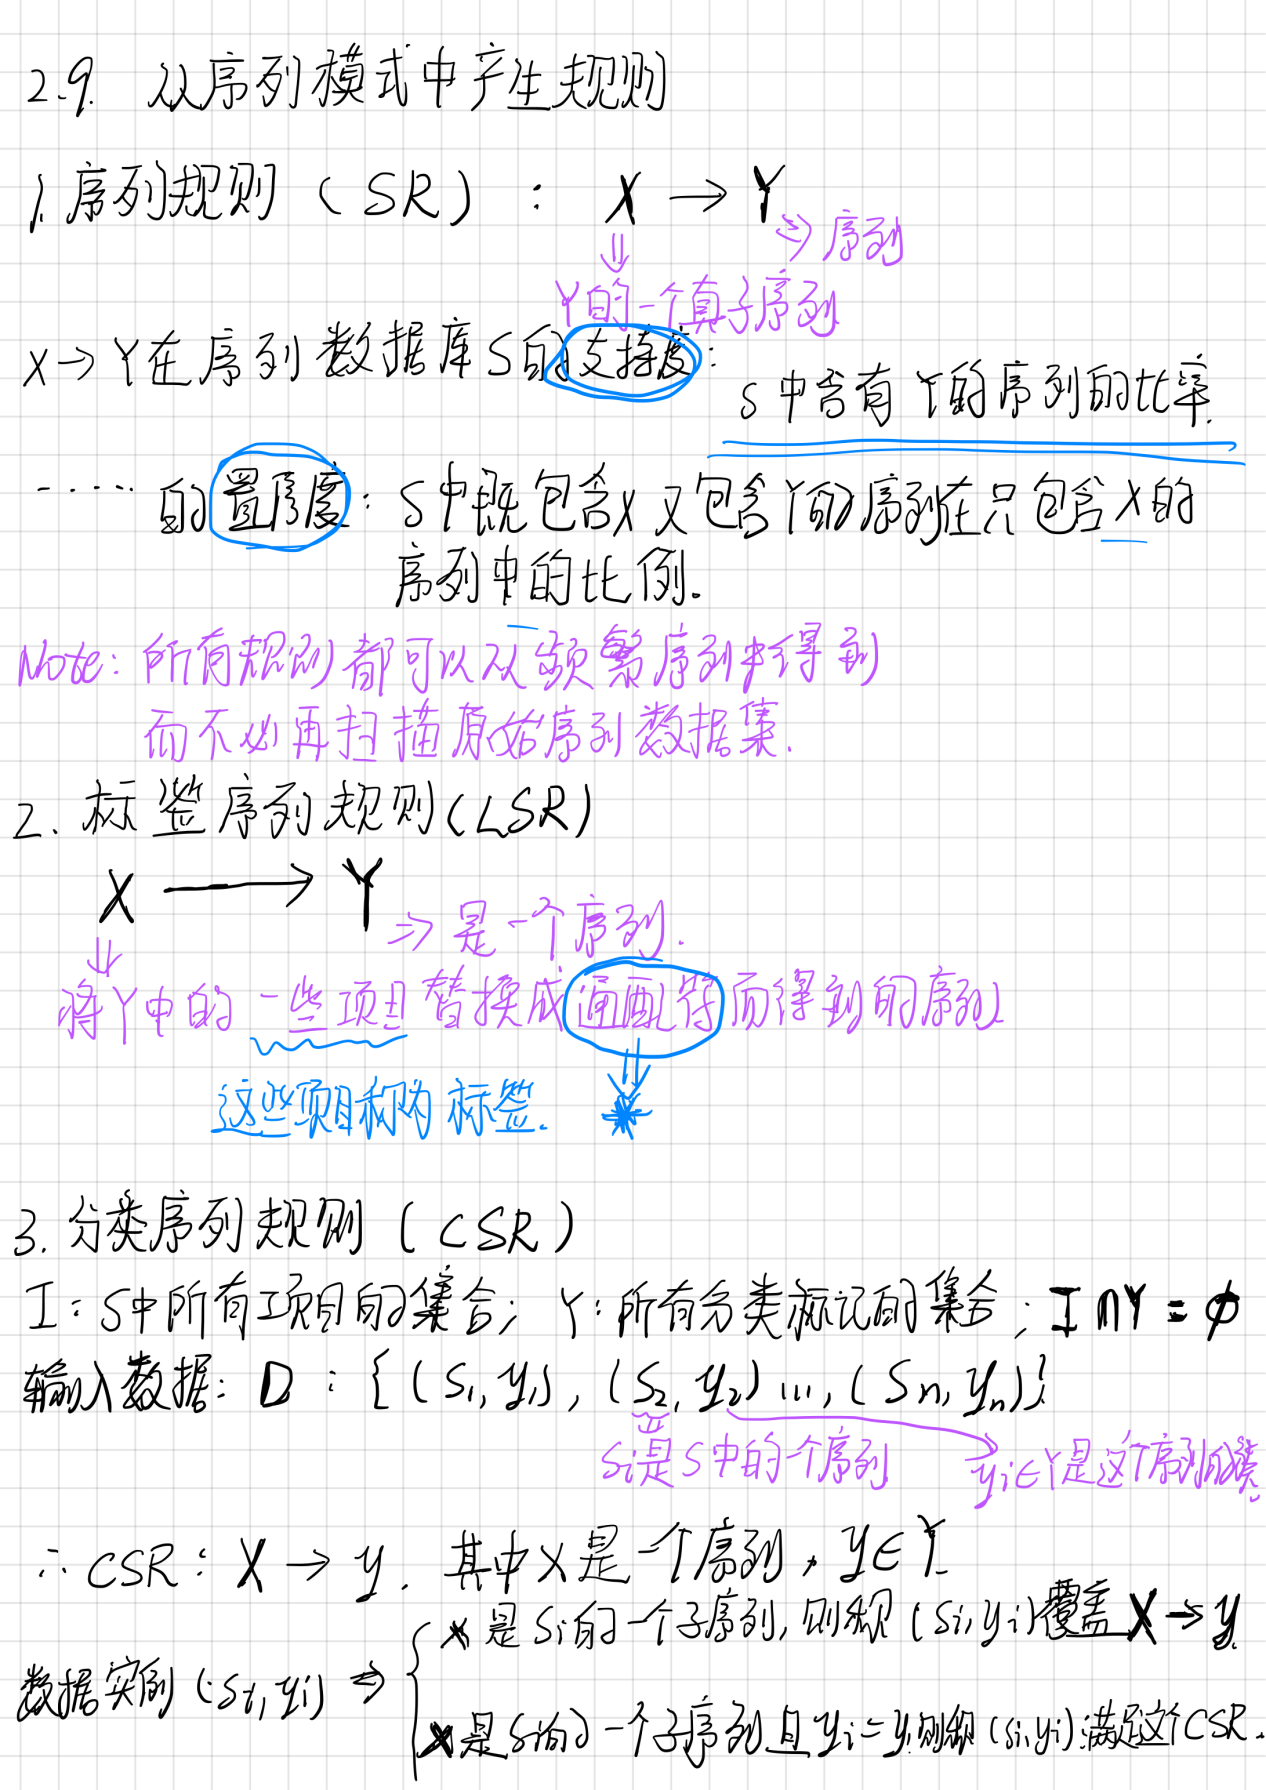 2.9. 从序列模式中产生规则
1.序列规则（SR）： X → Y
⇒ 序列
⇓
Y的一个真子序列
X→Y在序列数据库S的支持度：
S中含有Y的序列的比率.
······的置信度：S中既包含X又包含Y的序列在只包含X的
序列中的比例.
Note：所有规则都可以从频繁序列中得到
而不必再扫描原始序列数据集.
2. 标签序列规则(LSR)
X → Y
⇒ 是一个序列.
⇓
将Y中的一些项目替换成通配符而得到的序列
⇓
这些项目称为标签. *
3. 分类序列规则（CSR）
I：S中所有项目的集合；Y：所有分类标记的集合；I∩Y=∅
输入数据：D：{(S1,y1),(S2,y2)...,(Sn,yn)}
Si是S中的个序列 yi∈Y是这个序列的类.
∴ CSR：X → y. 其中X是一个序列，y∈Y
X是Si的一个子序列,则称(Si,yi)覆盖X→y
数据实例(Si,yi) ⇒ {
X是Si的一个子序列且yi=y,则称(Si,yi)满足这个CSR.